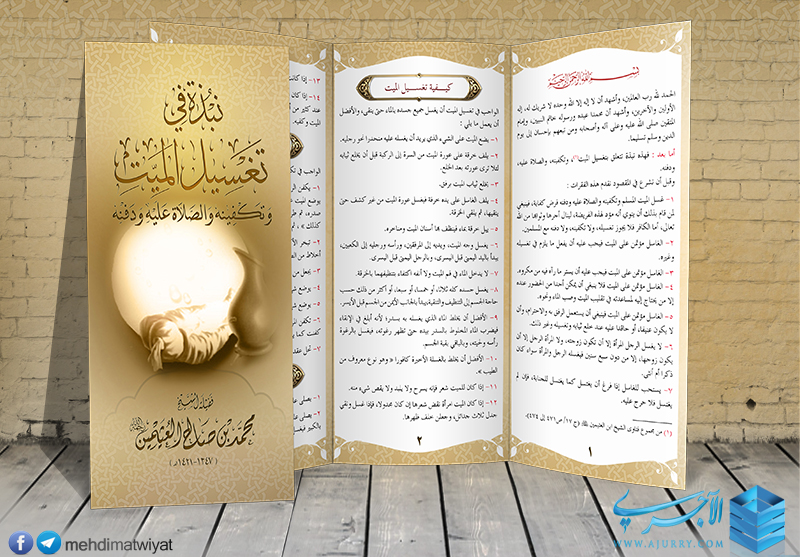 نبذة في
تغسيل الميت
وتكفينه والصلاة عليه ودفنه
فضيلة الشيخ
محمد بن صالح العثيمين
(١٣٤٧-١٤٢١هـ)
بسم الله الرحمن الرحيم
الحمد لله رب العالمين، وأشهد أن لا إله إلا الله وحده لا شريك له، إله
الأولين والآخرين، وأشهد أن محمدا عبده ورسوله خاتم النبيين، وإمام
المتقين صلى الله عليه وعلى آله وأصحابه ومن تبعهم بإحسان إلى يوم
الدين وسلم تسليما.
أما بعد : فهذه نبذة تتعلق بتغسيل الميت(١)، وتكفينه، والصلاة عليه،
ودفنه.
وقبل أن نشرع في المقصود نقدم هذه الفقرات :
١- غسل الميت المسلم وتكفينه والصلاة عليه ودفنه فرض كفاية، فينبغي
لمن قام بذلك أن ينوي أنه مؤد هذه الفريضة، لينال أجرها وثوابها من الله
تعالى، أما الكافر فلا يجوز تغسيله، ولا تكفينه، ولا دفنه مع المسلمين.
٢- الغاسل مؤتمن على الميت فيجب عليه أن يفعل ما يلزم في تغسيله
وغيره.
٣- الغاسل مؤتمن على الميت فيجب عليه أن يستر ما رآه فيه من مكروه.
٤- الغاسل مؤتمن على الميت فلا ينبغي أن يمكّن أحدا من الحضور عنده
إلا من يحتاج إليه لمساعدته في تقليب الميت وصب الماء ونحوه.
٥- الغاسل مؤتمن على الميت فينبغي أن يستعمل الرفق به والاحترام، وأن
لا يكون عنيفا، أو حاقدا عليه عند خلع ثيابه وتغسيله وغير ذلك.
٦- لا يغسل الرجل المرأة إلا أن تكون زوجته، ولا المرأة الرجل إلا أن
يكون زوجها، إلا من دون سبع سنين فيغسله الرجل والمرأة سواء كان
ذكرا أم أنثى.
٧- يستحب للغاسل إذا فرغ أن يغتسل كما يغتسل للجنابة، فإن لم
يغتسل فلا حرج عليه.
(١) من مجموع فتاوى الشيخ ابن العثيمين (ج ١٧/ ص٤٧١ إلى ٤٧٤)
١
كيفية تغسيل الميت
الواجب في تغسيل الميت أن يغسل جميع جسده بالماء حتى ينقى، والأفضل
أن يعمل ما يلي :
١- يضع الميت على الشيء الذي يريد أن يغسله عليه منحدرا نحو رجليه.
٢- يلف خرقة على عورة الميت من السرة إلى الركبة قبل أن يخلع ثيابه
لئلا ترى عورته بعد الخلع.
٣- يخلع ثياب الميت برفق.
٤- يلف الغاسل على يده خرقة فيغسل عورة الميت من غير كشف حتى
ينقيها، ثم يلقي الخرقة.
٥- يبل خرقة بماء فينظف بها أسنان الميت ومناخره.
٦- يغسل وجه الميت، ويديه إلى المرفقين، ورأسه ورجليه إلى الكعبين،
يبدأ باليد اليمنى قبل اليسرى، وبالرجل اليمنى قبل اليسرى.
٧- لا يدخل الماء في فم الميت ولا أنفه اكتفاء بتنظيفهما بالخرقة.
٨- يغسل جسده كله ثلاثا، أو خمسا، أو سبعا، أو أكثر من ذلك حسب
حاجة الجسم إلى التنظيف والتنقية، يبدأ بالجانب الأيمن من الجسم قبل الأيسر.
٩- الأفضل أن يخلط الماء الذي يغسله به بسدر؛ لأنه أبلغ في الإنقاء
فيضرب الماء المخلوط بالسدر بيده حتى تظهر رغوته، فيغسل بالرغوة
رأسه ولحيته، وبالباقي بقية الجسم.
١٠- الأفضل أن يخلط بالغسلة الأخيرة كافورا « وهو نوع معروف من
الطيب ».
١١- إذا كان للميت شعر فإنه يسرح ولا يلبد ولا يقص شيء منه.
١٢- إذا كان الميت امرأة نقض شعرها إن كان مجدولا، فإذا غسل ونقي
جدل ثلاث جدائل، وجعلن خلف ظهرها.
٢
١٣- إذا كان
١٤- إذا كان
الواجب في
١- يكفن
٢- تبخر
٣- يجعل من
٤- يوضع
٥- يوضع
٦- تكفن
٧- تحل عقد
١- يصلى على
٢- يصلى على
mehdimatwiyat
الآجري
WWW.AJURRY.COM